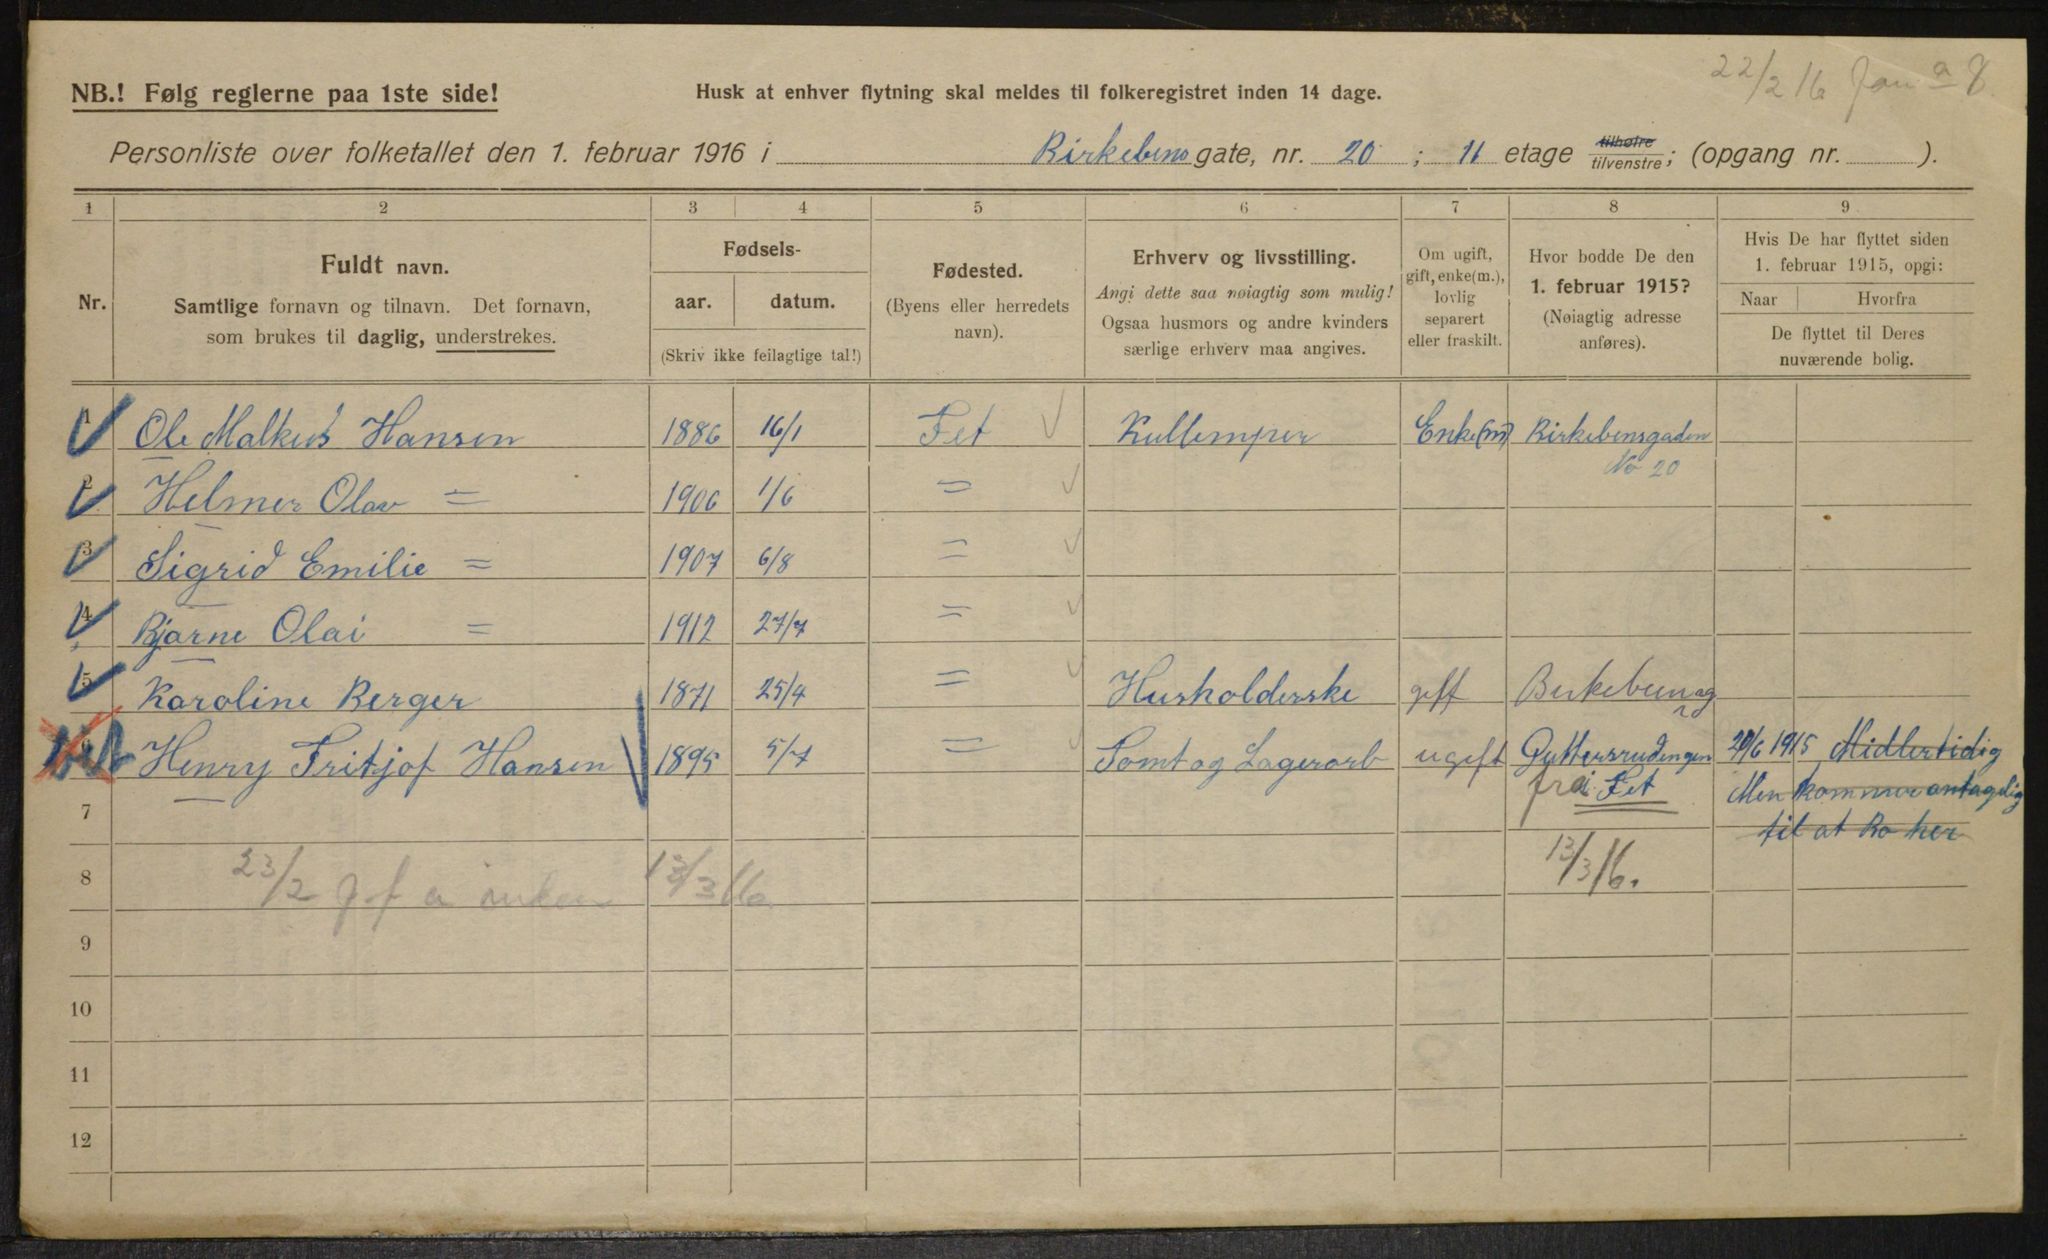 22/2 16
NB.! Følg reglerne paa 1ste side!
Husk at enhver flytning skal meldes til folkeregistret inden 14 dage.
Personliste over folketallet den 1. februar 1916 i Birkebens gate, nr. 20 ; 11 etage tilhøire tilvenstre; (opgang nr. ).
1 2 3 4 5 6 7 8 9
Nr.
Fuldt navn.
Samtlige fornavn og tilnavn. Det fornavn,
som brukes til daglig, understrekes.
Fødsels-
aar. datum.
(Skriv ikke feilagtige tal!)
Fødested.
(Byens eller herredets
navn).
Erhverv og livsstilling.
Angi dette saa nøiagtig som mulig!
Ogsaa husmors og andre kvinders
særlige erhverv maa angives.
Om ugift,
gift, enke(m.),
lovlig
separert
eller fraskilt.
Hvor bodde De den
1. februar 1915?
(Nøiagtig adresse
anføres).
Hvis De har flyttet siden
1. februar 1915, opgi:
Naar Hvorfra
De flyttet til Deres
nuværende bolig.
1 Ole Malkus Hansen 1886 16/1 Fet Kullemper Enke(m) Birkebensgaden
No 20
2 Helmer Olav = 1906 1/6 =
3 Sigrid Emilie = 1907 6/8 =
4 Bjarne Olai = 1912 27/7 =
5 Karoline Berger 1871 25/4 = Husholderske gift
6 Henry Fritjof Hansen 1895 5/7 = Tomt og Lagerarb ugift 1915 Midlertidig
fra Fet Men kommer antagelig
7 til at Bo her
8 23/2 13/3 16 13/3 16.
9
10
11
12